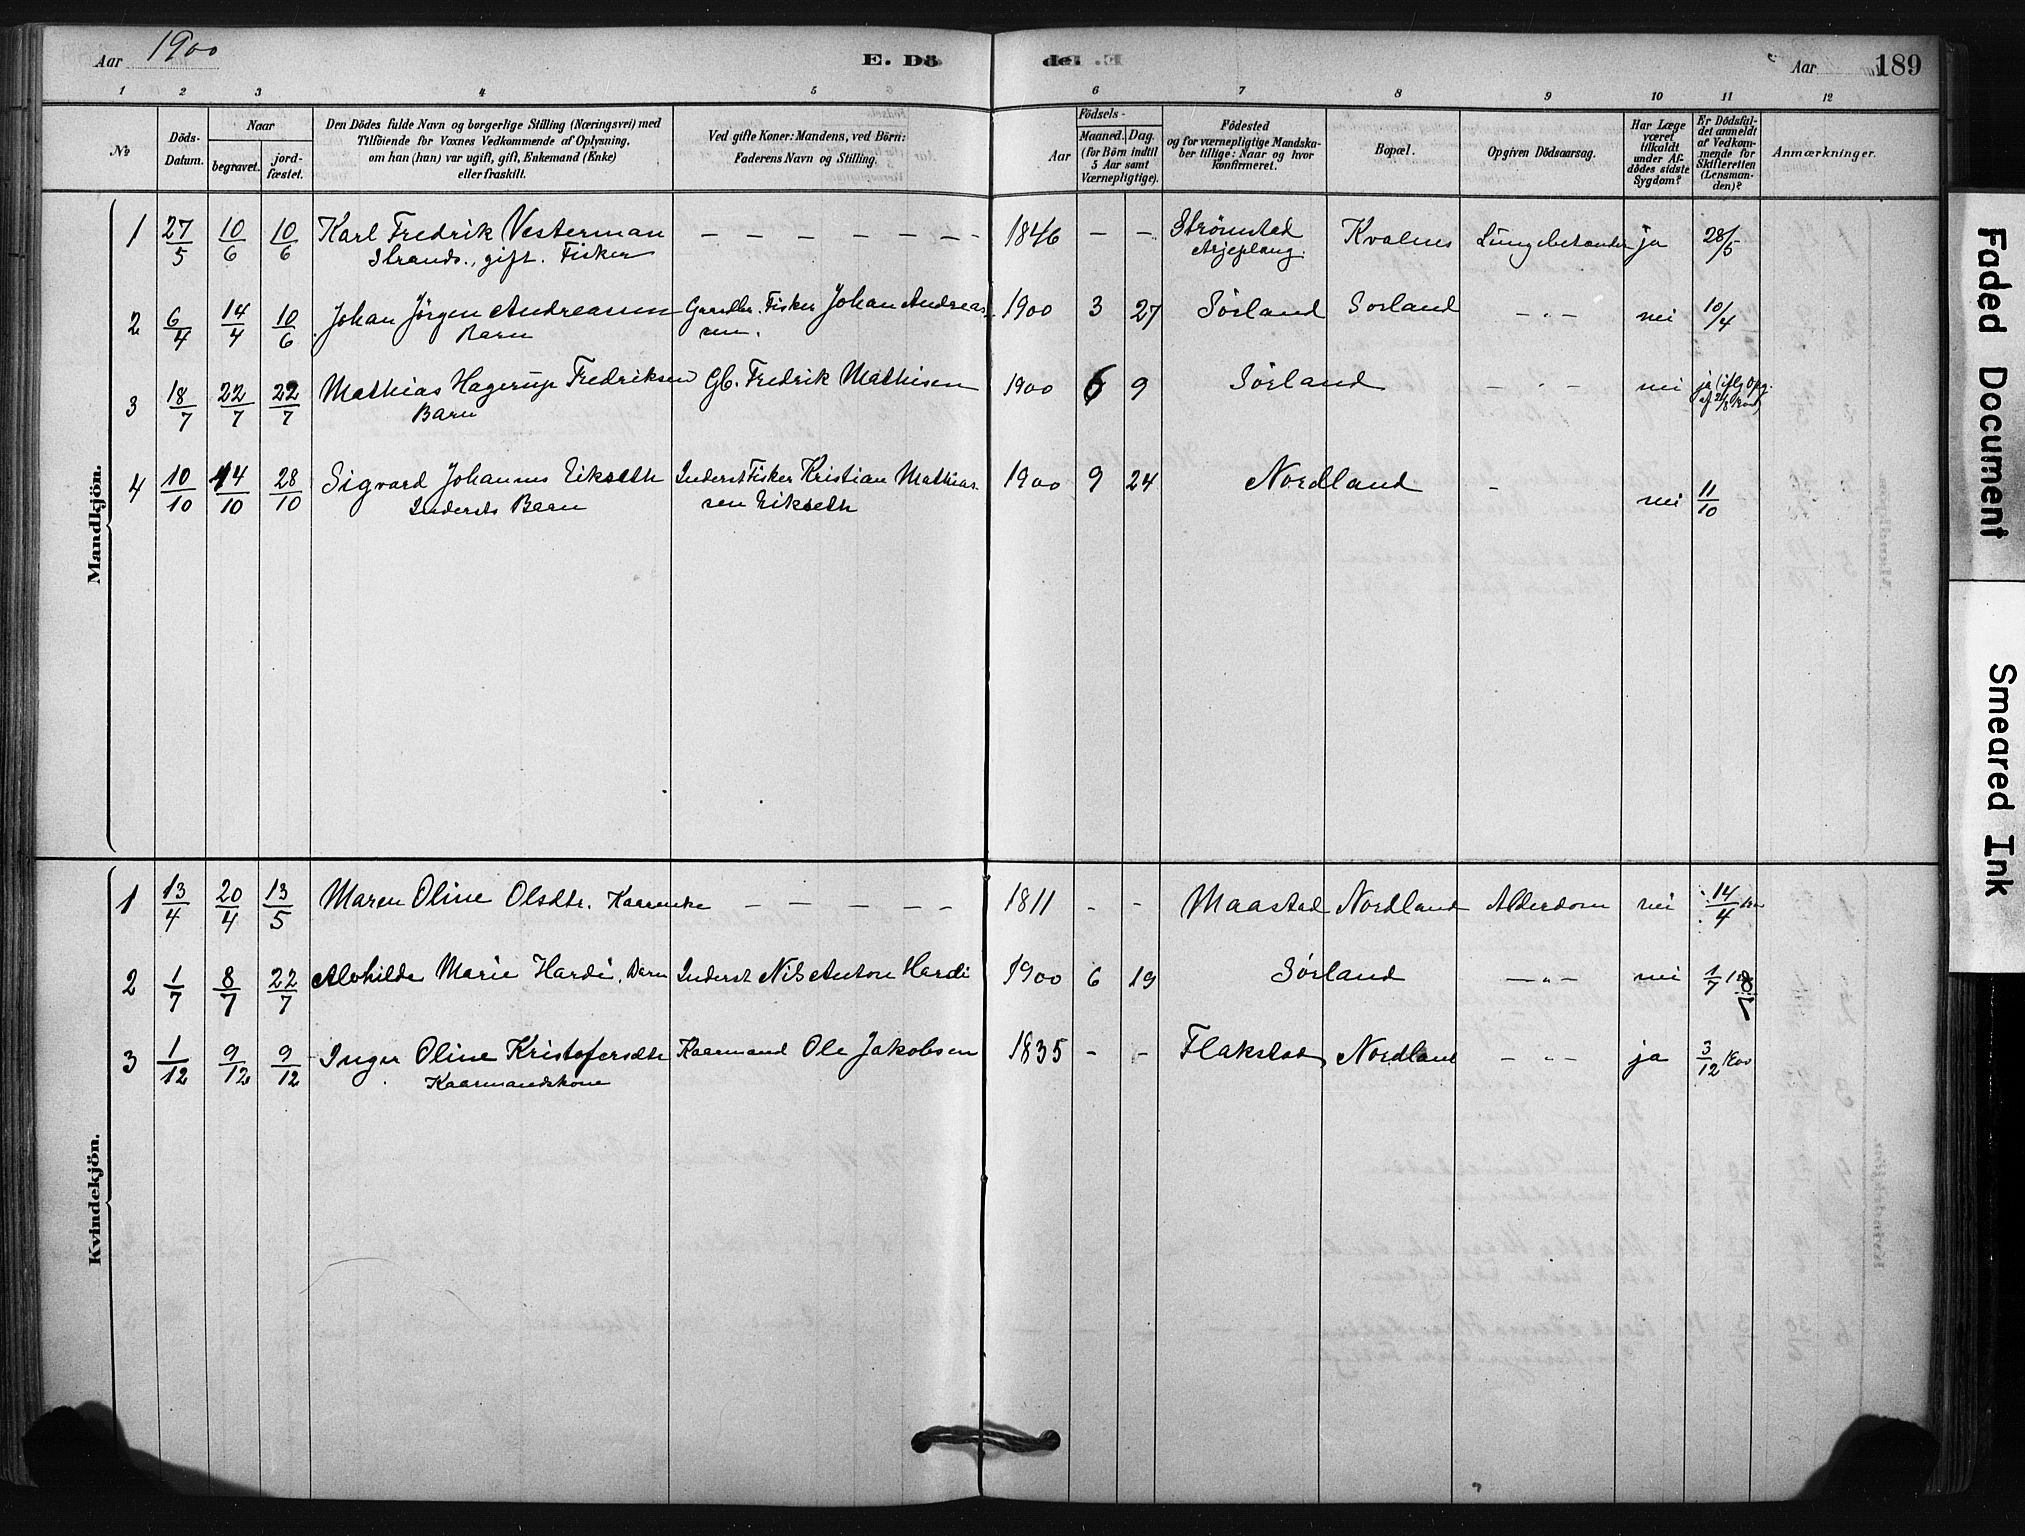 Aar 1900 E. Döde. Aar 189
1 2 3 4 5 6 7 8 9 10 11 12
№
Döds-Datum.
Naar
begravet.
jord-fæstet.
Den Dödes fulde Navn og borgerlige Stilling (Næringsvei) med
Tilföiende for Voxnes Vedkommende af Oplysning,
om han (hun) var ugift, gift, Enkemand (Enke)
eller fraskilt.
Ved gifte Koner: Mandens, ved Börn:
Faderens Navn og Stilling.
Födsels-
Aar
Maaned. Dag.
(for Börn indtil
5 Aar samt
Værnepligtige).
Födested
og for værnepligtige Mandska-
ber tillige: Naar og hvor
konfirmeret.
Bopæl.
Opgiven Dödsaarsag.
Har Læge
været
tilkaldt
under Af-
dödes sidste
Sygdom?
Er Dödsfal-
det anmeldt
af Vedkom-
mende for
Skifteretten
(Lensman-
den)?
Anmærkninger.
Mandkjön.
1 27/5 10/6 10/6 Karl Fredrik Vesterman – – – – – – – 1846 – – Strømstad Kvalnes ja 28/5
Strands., gift. Fisker Arjeplaug.
2 6/4 14/4 10/6 Johan Jörgen Andreassen Fisker Johan Andreas- 1900 3 27 Sørland Sørland – " – nei 10/4
Barn sen.
3 18/7 22/7 22/7 Mathias Hagerup Fredriksen Gb. Fredrik Mathisen 1900 6 9 Sørland – " – nei ja
Barn
4 10/10 14/10 28/10 Sigvard Johannes Eikseth Inderst Fisker Kristian Mathias- 1900 9 24 Nordland – nei 11/10
Indersts Barn sen Eikseth
Kvindekjön.
1 13/4 20/4 13/5 Maren Oline Olsdtr. Kaarenke – – – – – 1811 – – Maastad Nordland Alderdom nei 14/4
2 1/7 8/7 22/7 Alvhilde Marie Hardi, Barn Inderst Nils Anton Hardi 1900 6 19 Sørland – " – nei 1/7
3 1/12 9/12 9/12 Inger Oline Kristofersdtr Kaarmand Ole Jakobsen 1835 – – Flakstad Nordland – " – ja 3/12 1900
Kaarmandskone
Faded Document
Smeared Ink